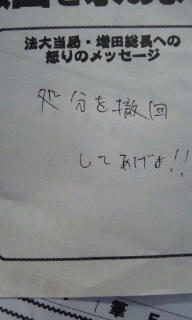 法大当局・増田総長への
怒りのメッセージ
処分を撤回
してあげま!!
筆